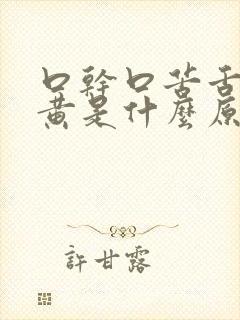 口幹口苦舌
黃是什麼原
許甘露